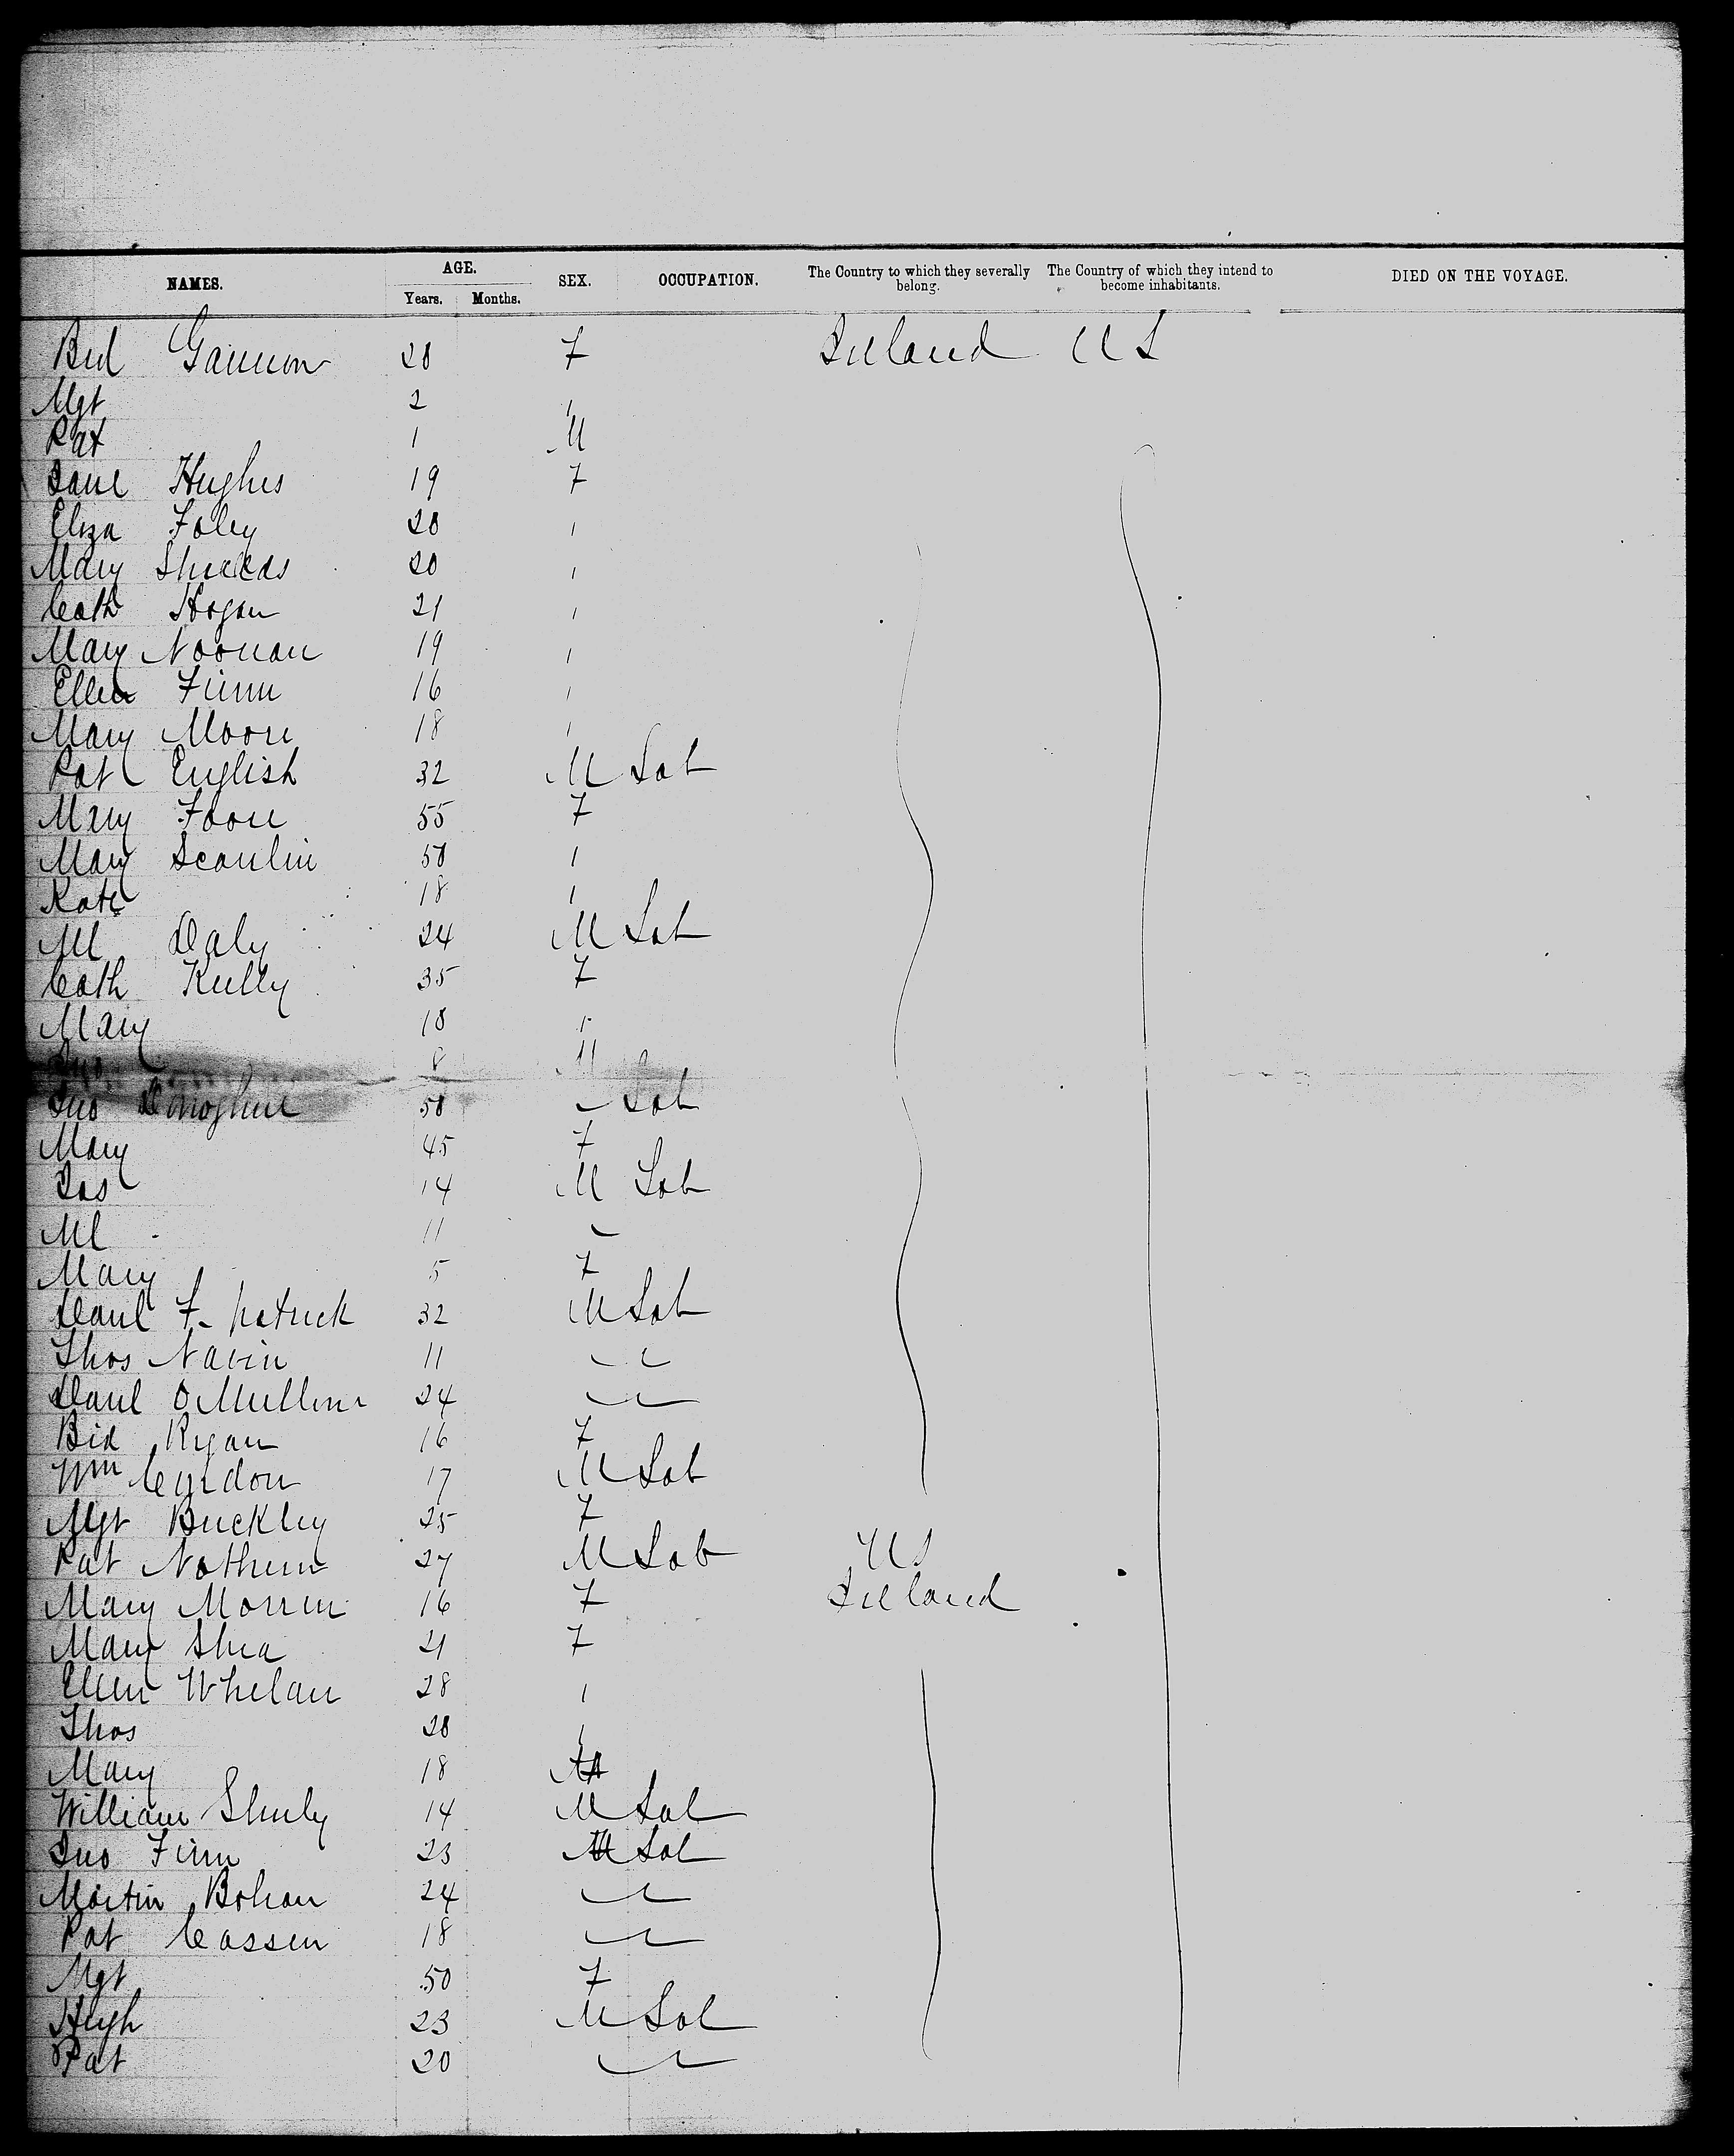 NAMES. AGE. Years. Months. SEX. OCCUPATION. The Country to which they severally belong. The Country of which they intend to become inhabitants. DIED ON THE VOYAGE.
Bid Gannon 28 F Ireland US
Mgt 2 "
Pat 1 M
Jane Hughes 19 F
Eliza Foley 20 "
Mary Shields 20 "
Cath Hogan 21 "
Mary Noonan 19 "
Ellen Finn 16 "
Mary Moore 18 "
Pat English 32 M Lab
Mary 55 F
Mary Scanlin 50 "
Kate 18 "
Ml Daly 24 M Lab
Cath Kelly 35 F
Mary 18 "
Jno 8 M
Jno Donoghue 50 " Lab
Mary 45 F
Jas 14 M Lab
Ml 11 "
Mary 5 F
Danl F-patrick 32 M Lab
Thos Navin 11 " "
Danl O Mullins 24 " "
Bid Ryan 16 F
Wm Condon 17 M Lab
Mgt Buckley 25 F
Pat 27 M Lab US
Mary 16 F Ireland
Mary Shea 21 F
Ellen Whelan 28 "
Thos 20 "
Mary 18
William 14 M Lab
Jno Finn 23 M Lab
Martin Bohan 24 " "
Pat Cassen 18 " "
Mgt 50 F
Hugh 23 M Lab
Pat 20 " "